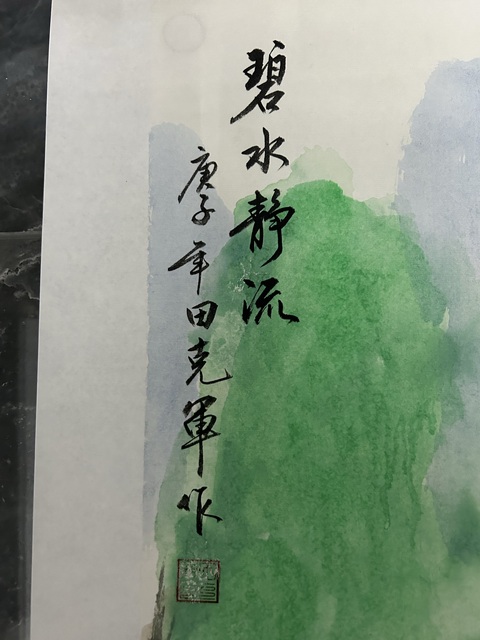 碧水静流
庚子年田克军作